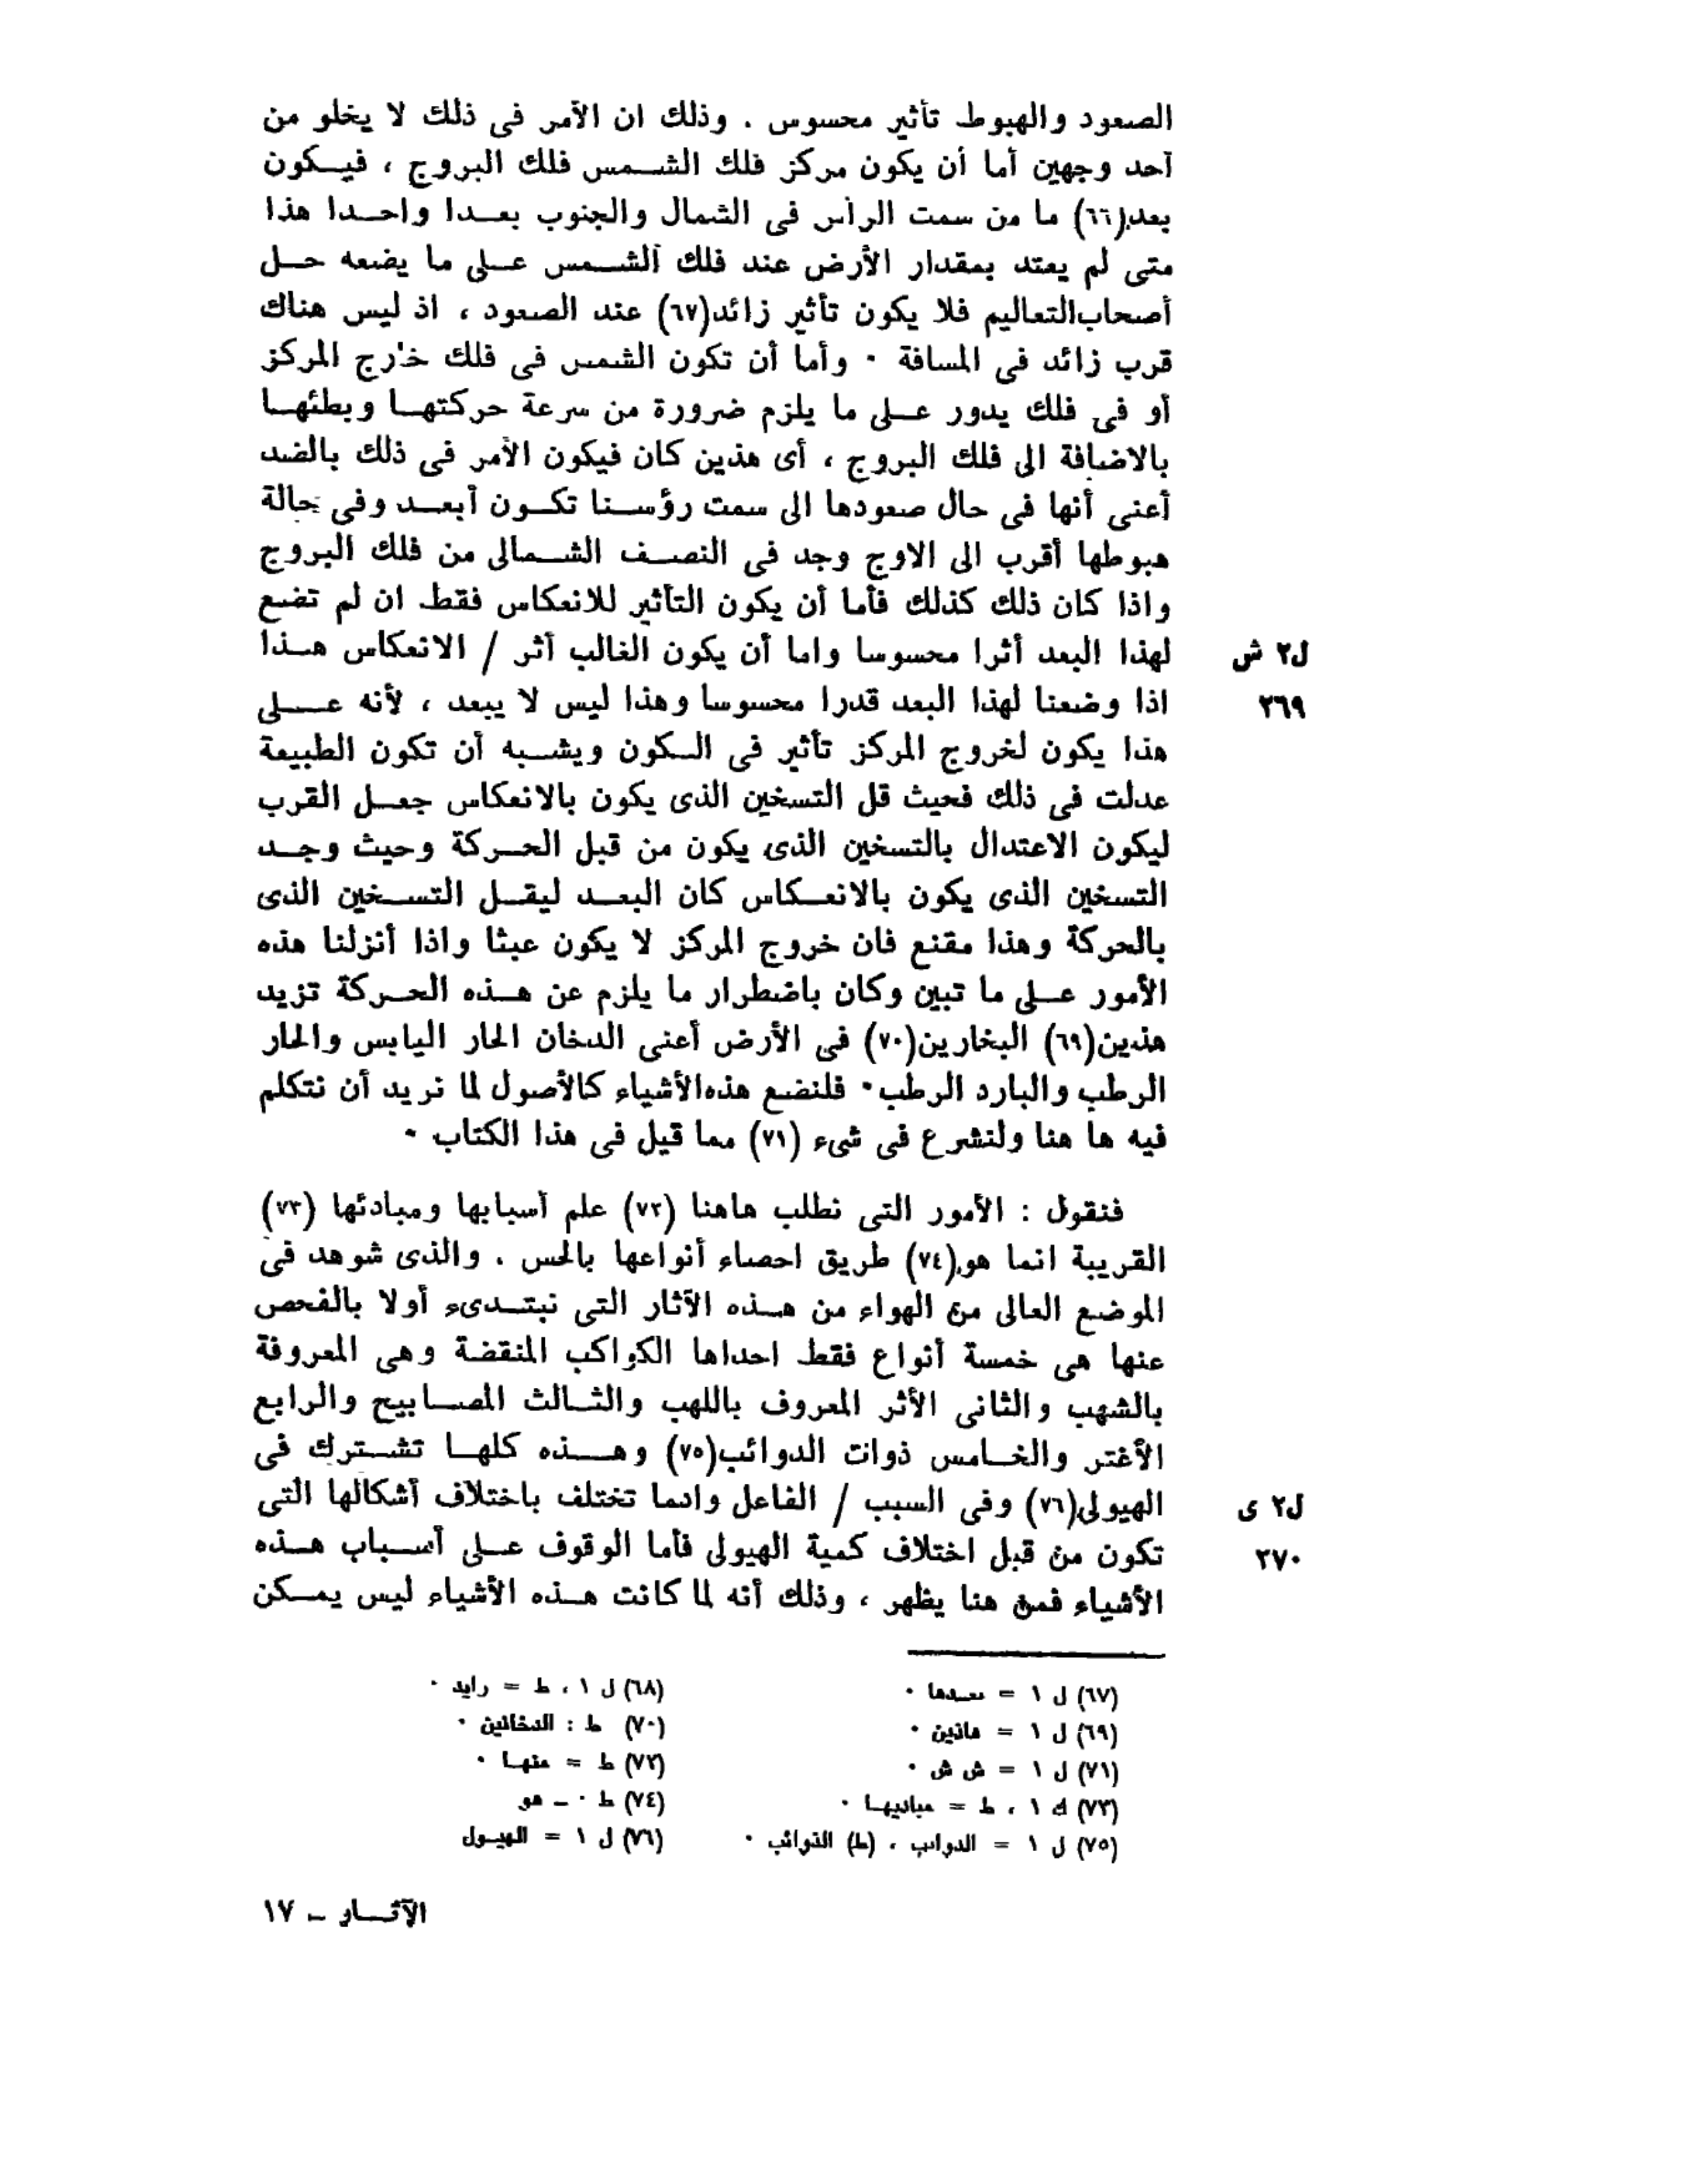 الصعود والهبوط تأثير محسوس . وذلك ان الأمر فى ذلك لا يخلو من
أحد وجهين أما أن يكون مركز فلك الشـمس فلك البروج ، فيـكون
بعد(٦٦) ما من سمت الرأس فى الشمال والجنوب بعـدا واحـدا هذا
متى لم يعتد بمقدار الأرض عند فلك الشـمس عـلى ما يضعه حـل
أصحاب التعاليم فلا يكون تأثير زائد(٦٧) عند الصعود ، اذ ليس هناك
قرب زائد فى المسافة ٠ وأما أن تكون الشمس فى فلك خارج المركز
أو فى فلك يدور عـلى ما يلزم ضرورة من سرعة حركتهـا وبطئهـا
بالاضافة الى فلك البروج ، أى هذين كان فيكون الأمر فى ذلك بالضد
أعنى أنها فى حال صعودها الى سمت رؤسـنا تكـون أبعـد وفى حالة
هبوطها أقرب الى الاوج وجد فى النصـف الشـمالى من فلك البروج
واذا كان ذلك كذلك فأما أن يكون التأثير للانعكاس فقط ان لم تضع
لهذا البعد أثرا محسوسا واما أن يكون الغالب أثر / الانعكاس هـذا
ل٢ ش
اذا وضعنا لهذا البعد قدرا محسوسا وهذا ليس لا يبعد ، لأنه عـلى
٢٦٩
هذا يكون لخروج المركز تأثير فى الـكون ويشـبه أن تكون الطبيعة
عدلت فى ذلك فحيث قل التسخين الذى يكون بالانعكاس جعـل القرب
ليكون الاعتدال بالتسخين الذى يكون من قبل الحـركة وحيث وجـد
التسخين الذى يكون بالانعـكاس كان البعـد ليقـل التسـخين الذى
بالحركة وهذا مقنع فان خروج المركز لا يكون عبثا واذا أنزلنا هذه
الأمور عـلى ما تبين وكان باضطرار ما يلزم عن هـذه الحـركة تزيد
هذين(٦٩) البخارين(٧٠) فى الأرض أعنى الدخان الحار اليابس والحار
الرطب والبارد الرطب٠ فلنضع هذه الأشياء كالأصول لما نريد أن نتكلم
فيه ها هنا ولنشرع فى شىء (٧١) مما قيل فى هذا الكتاب ٠
فنقول : الأمور التى نطلب هاهنا (٧٢) علم أسبابها ومبادئها (٧٣)
القريبة انما هو(٧٤) طريق احصاء أنواعها بالحس . والذى شوهد فى
الموضع العالى من الهواء من هـذه الآثار التى نبتـدىء أولا بالفحص
عنها هى خمسة أنواع فقط احداها الكواكب المنقضة وهى المعروفة
بالشهب والثانى الأثر المعروف باللهب والثـالث المصـابيح والرابع
الأغتر والخـامس ذوات الدوائب(٧٥) وهـذه كلهـا تشـترك فى
الهيولى(٧٦) وفى السبب / الفاعل وانما تختلف باختلاف أشكالها التى
ل٢ ى
تكون من قبل اختلاف كمية الهيولى فأما الوقوف عـلى أسـباب هـذه
٢٧٠
الأشياء فمن هنا يظهر ، وذلك أنه لما كانت هـذه الأشياء ليس يمـكن
(٦٧) ل ١ = بعـدها ٠
(٦٨) ل ١ ، ط = رايد ٠
(٦٩) ل ١ = هاذين ٠
(٧٠) ط : الدخانين ٠
(٧١) ل ١ = ش ش ٠
(٧٢) ط = منهـا ٠
(٧٣) ك ١ ، ط = مباديهـا ٠
(٧٤) ط ٠ ـ هو
(٧٥) ل ١ = الدوايب ، (ط) الذوائب ٠
(٧٦) ل ١ = الهيـول
الآثـار ـ ١٧